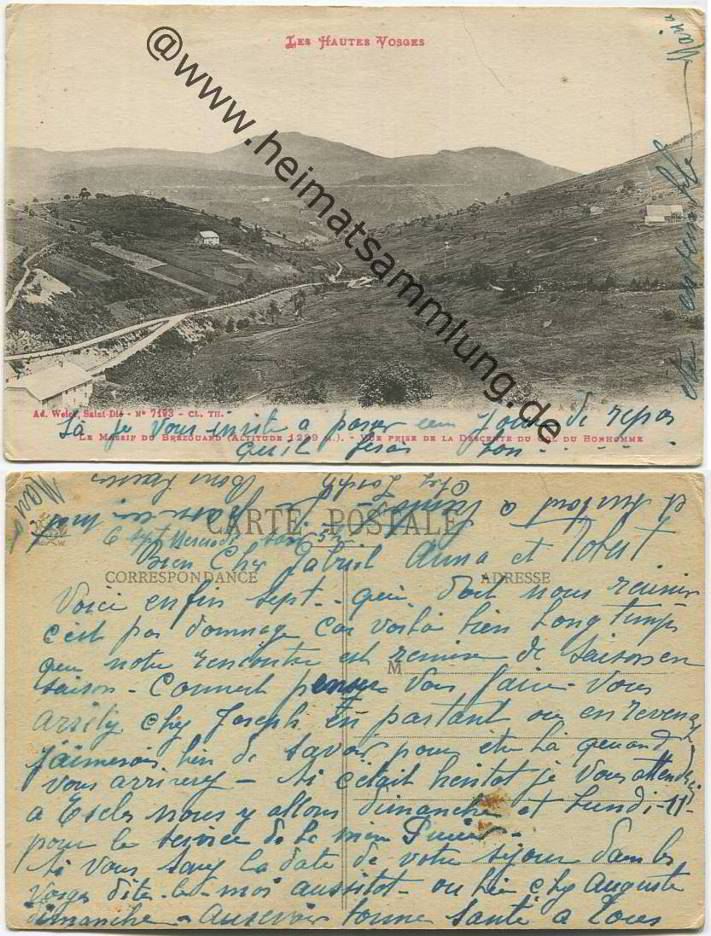 LES HAUTES VOSGES
@www.heimatsammlung.de
Maria
être ensemble
Ad. Weick, Saint-Dié - N° 7193 - Cl. TH.
Là je vous invite a passer un jour de repos
LE MASSIF DU BREZOUARD (ALTITUDE 1229 M.). - VUE PRISE DE LA DESCENTE DU COL DU BONHOMME
qu'il fera bon
CARTE POSTALE
Bien Cher Gabriel Anna et
CORRESPONDANCE
ADRESSE
Voici enfin Sept - qui doit nous réunir
c'est pas domnage car voilà bien longtemps
que notre rencontre est remise de saison en
M
saison - Comment pensez Vous faire - Vous
arrêtez chez Joseph en partant ou en revenant
j'aimerais bien de savoir pour être là quand
vous arriverez - si c'était bientot je vous attends
a nous y allons dimanche et Lundi - 11 -
pour le service de
Si vous savez la date de votre séjour dans les
Vosges dites-le-moi aussitot - ou bien chez Auguste
dimanche - Au revoir bonne santé a tous